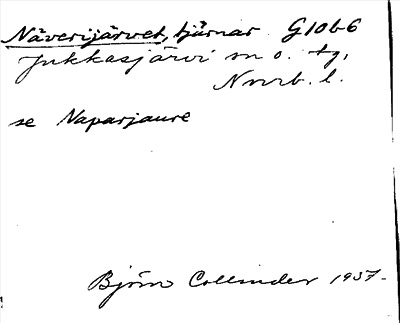 Näverijärvet, tjärnar G10b6
Jukkasjärvi sn o. tg,
Norrb. l.
se Naparjaure
Björn Collinder 1937.